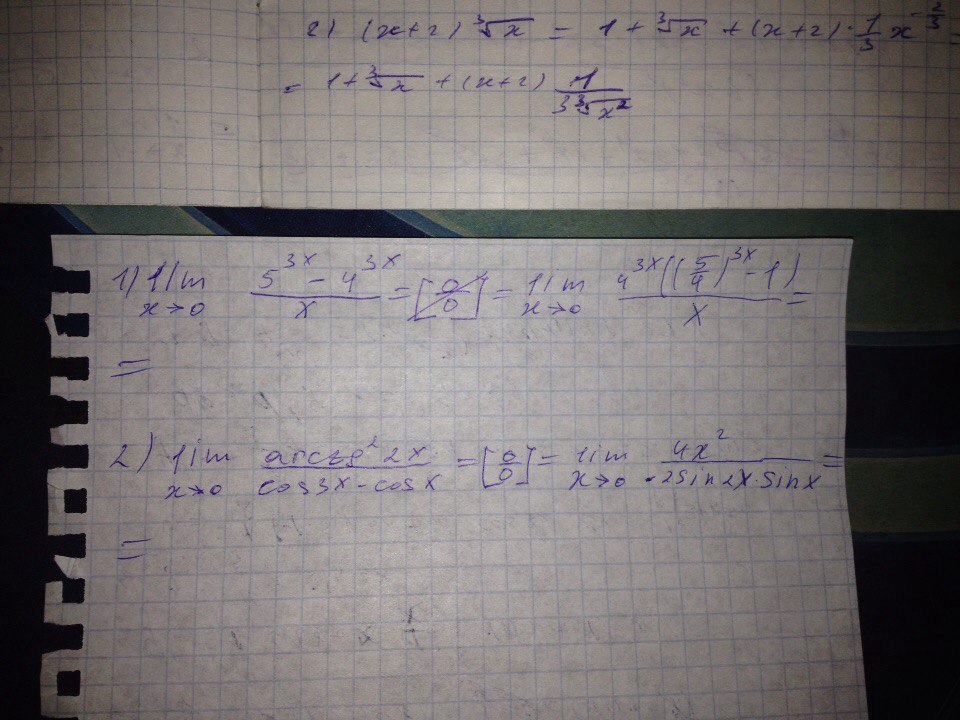 2) (x+2) ∛x = 1 + ∛x + (x+2) · 1/3 x^(-2/3) =
= 1 + ∛x + (x+2) 1/(3∛x²)
1) lim x→0 (5^(3x) - 4^(3x))/x = [0/0] = lim x→0 (4^(3x)((5/4)^(3x) - 1))/x =
=
2) lim x→0 (arctg² 2x)/(cos3x - cosx) = [0/0] = lim x→0 (4x²)/(-2sin2x·sinx) =
=